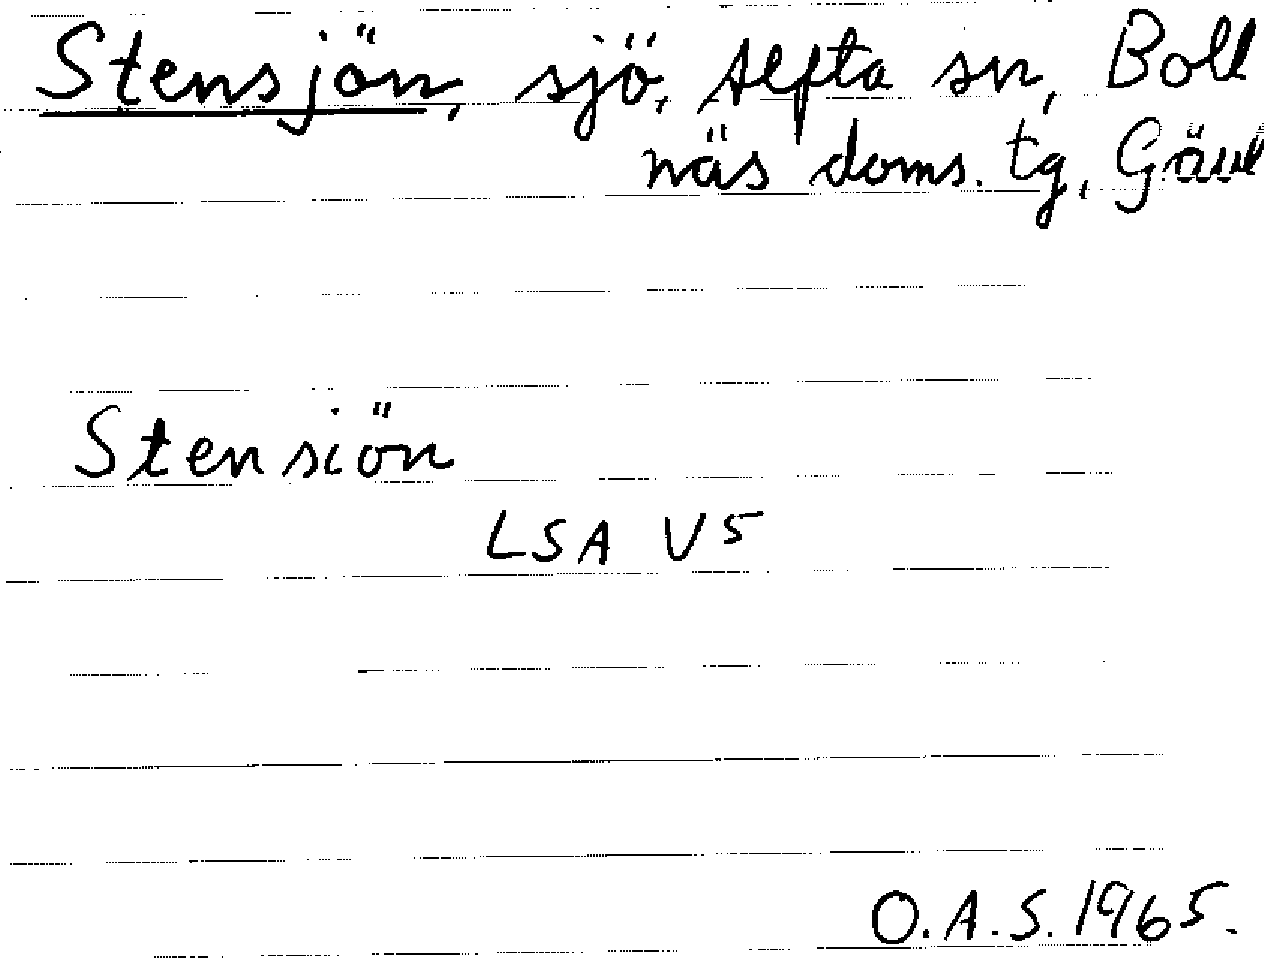 Stensjön, sjö, Alfta sn, Boll
näs doms. tg, Gävl
Stensiön
LSA V5
O.A.S. 1965.